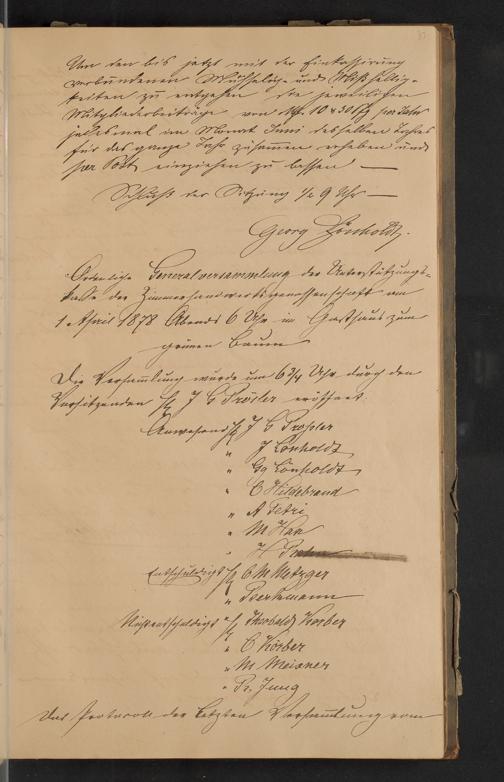 Um den bis jetzt mit der Einkassirung
verbundenen Mühseligs und Mißhellig-
keiten zu entgehen die jeweiligen
Mitgliederbeiträge von Mk. 10 & 50 Pfg per Jahr
jedesmal im Monat Juni desselben Jahres
für das ganze Jahr zusammen erheben und
per Post einziehen zu lassen —
Schluß der Sitzung ½ 9 Uhr —
Georg Lönholdt.
Ordentliche Generalversammlung der Unterstützungs-
kasse der Zimmerhandwerksgenossenschaft am
1. April 1878 Abends 6 Uhr im Gasthaus zum
grünen Baum
Die Versammlung wurde um 6 3/4 Uhr durch den
Vorsitzenden H J C Prösler eröffnet.
Anwesend H J C Prössler
" J Lönholdt
" Gg Lönholdt
" C Hildebrand
" A Petri
" M Han
" H
Entschuldigt H C M Metzger
" Beerkmann
Nichtentschuldigt H Theobald Körber
" C Körber
" M Meixner
" Pr. Jung
Das Protocoll der letzten Versammlung vom